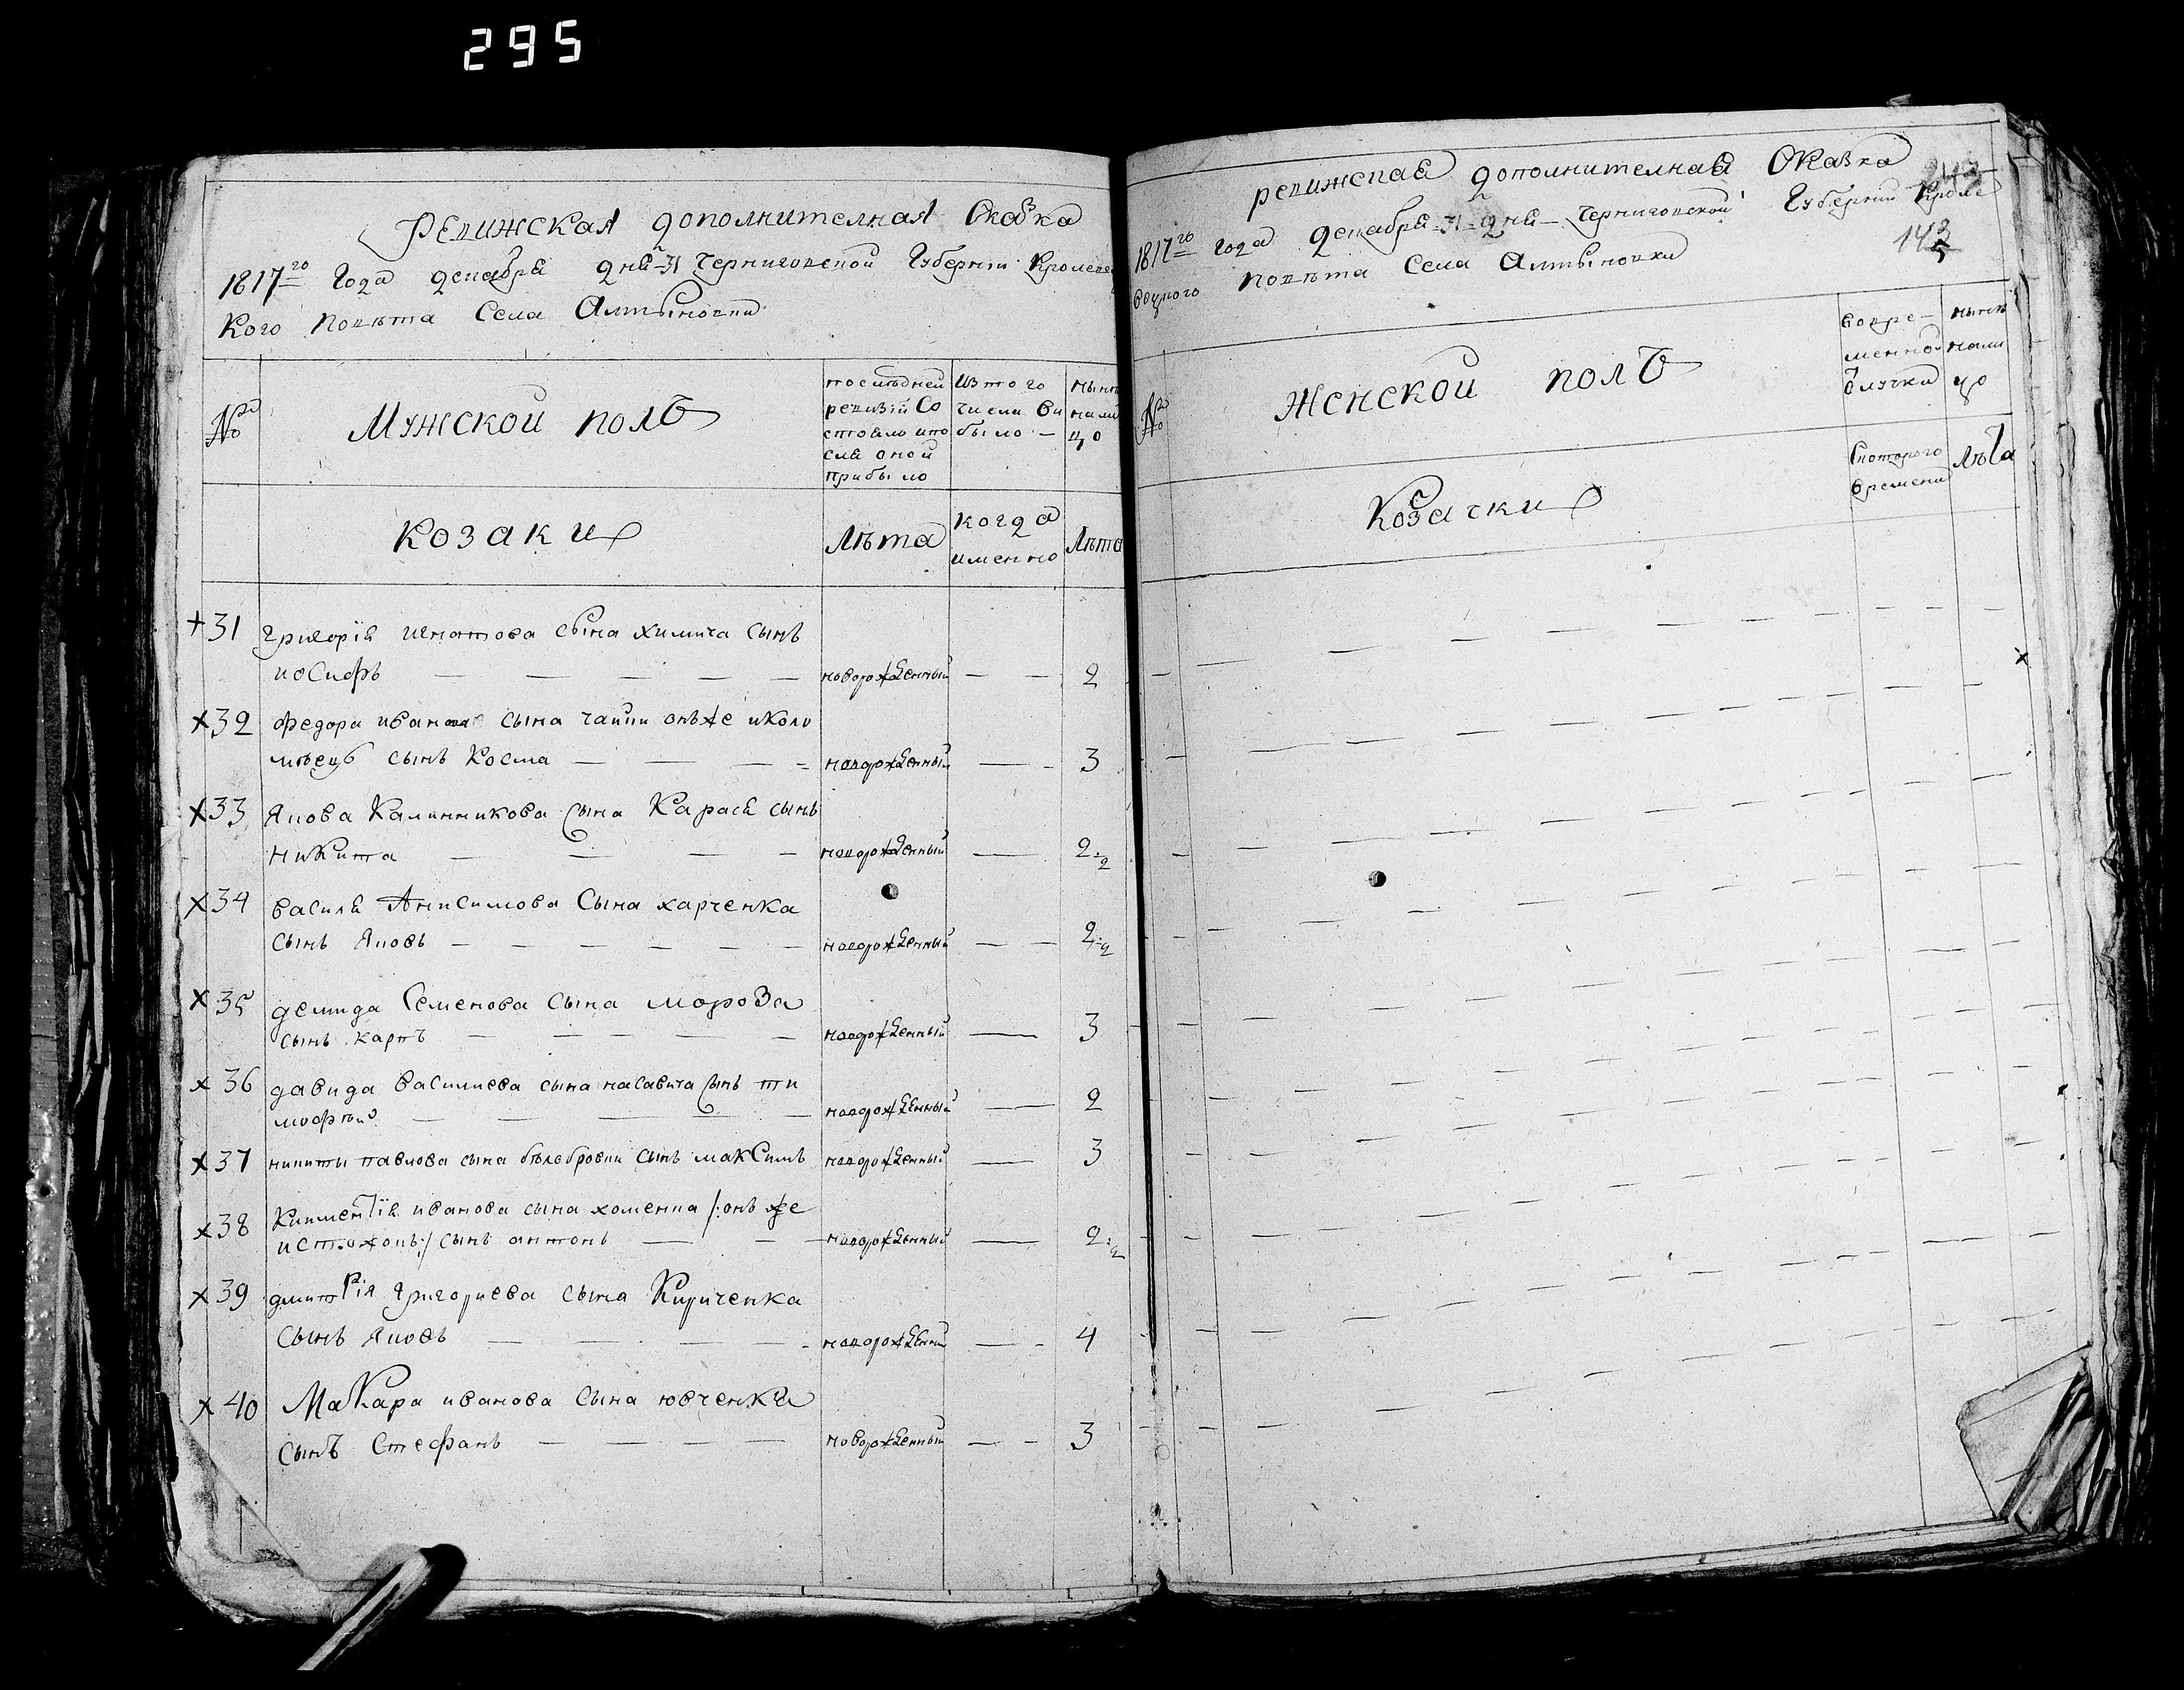 295
Ревижская дополнителная Сказка
1817го Года декабря дня 31 Черниговской Губерніи Кролевец
кого Повѣта Села Алтыновки
№
Мужской полъ
последней ревизіи Состояло и после оной прибыло
Изтого числа выбыло
нынѣ налицо
козаки
Лѣта
когда именно
Лѣта
+31 григорія игнатова сына химича сынъ
иосифъ — — — — — новорожденный — — 2
х32 федора иванова сына чайки онъже иколо
мѣецъ сынъ Косма — — — новорожденный — 3
х33 Якова Калинникова сына Карася сынъ
Никита — — — — новорожденный — 2½
х34 василя Анисимова Сына харченка
сынъ Яковъ — — — — — — новорожденный — — 2½
х35 демида Семенова сына мороза
сынъ карпъ — — — — — новорожденный — 3
х36 давида василиева сына масавича сынъ ти
мофѣй — — — — — новорожденный — 2
х37 никиты павлова сына бѣлобровки сынъ максимъ новорожденный — 3
х38 Климентія иванова сына хоменка /:онъ же
истожокъ:/ сынъ антонъ — — — новорожденный — 2½
х39 дмитрія григориева сына Кириченка
сынъ Яковъ — — — — новорожденный — 4
х40 Макара иванова сына ювченка
сынъ Стефанъ — — — — новорожденный — — 3
ревижская дополнителная Сказка
1817го года декабря 31 дня Черниговской Губерніи Кроле
вецкого повѣта Села Алтыновки
143
№
Женской полъ
вовременной отлучки
нынѣ налицо
Козачки
Скоторого времени
Лѣта